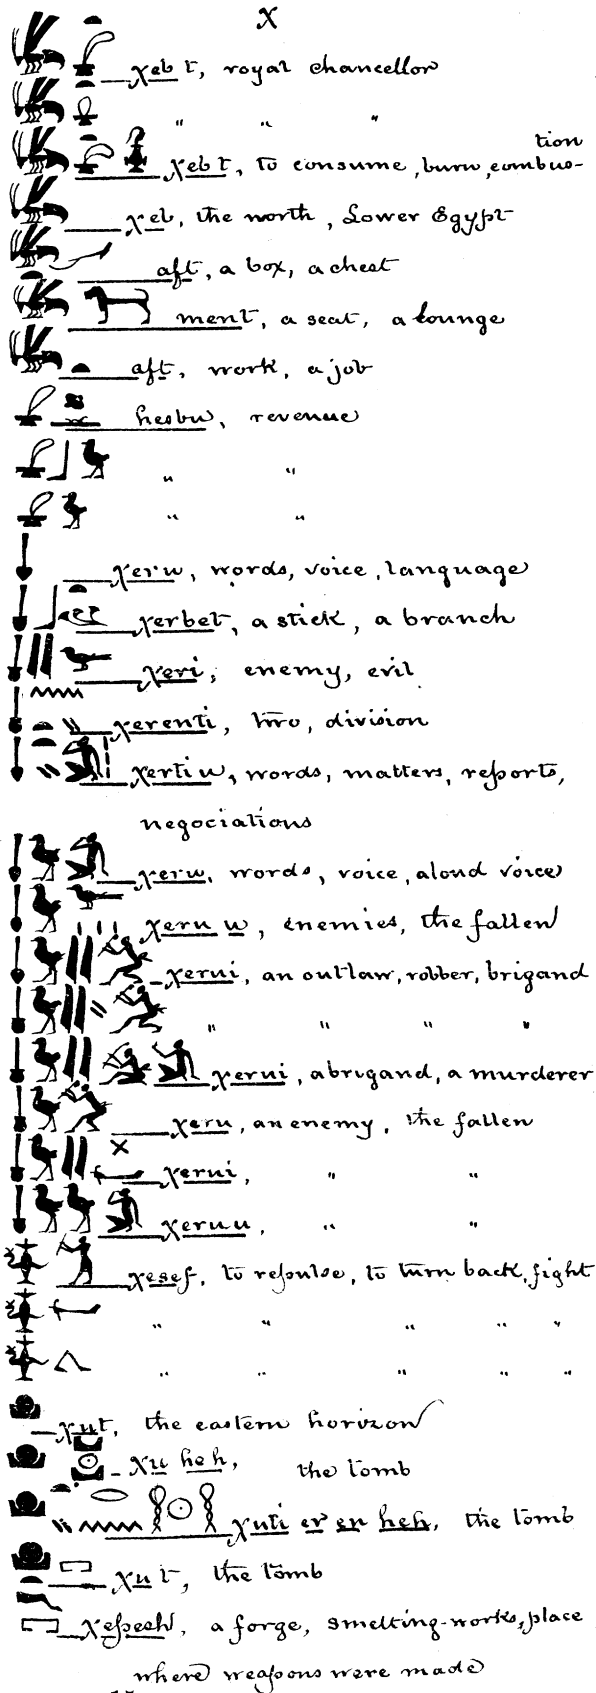 X
χeb t, royal chancellor
" " "
χeb t, to consume, burn, combus-
tion
χeb, the north, Lower Egypt
aft, a box, a chest
ment, a seat, a lounge
aft, work, a job
hesbu, revenue
" "
" "
χeru, words, voice, language
χerbet, a stick, a branch
χeri, enemy, evil
χerenti, two, division
χerti u, words, matters, reports,
negociations
χeru, words, voice, aloud voice
χeru u, enemies, the fallen
χerui, an outlaw, robber, brigand
" " " "
χerui, a brigand, a murderer
χeru, an enemy, the fallen
χerui, " "
χeruu, " "
χesef, to repulse, to turn back, fight
" " " " "
" " " " "
χut, the eastern horizon
χu heh, the tomb
χuti er en heh, the tomb
χu t, the tomb
χepesh, a forge, smelting-works, place
where weapons were made